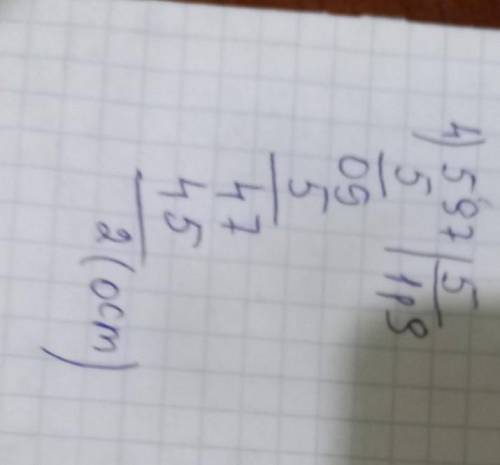 4) 597 | 5
5 | 119
09
5
47
45
2 (ост)